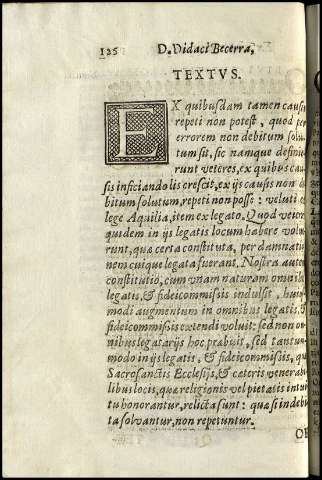 125 D. Didaci Becerra,
TEXTVS.
EX quibusdam tamen causis
repeti non potest, quod per
errorem non debitum solu
tum sit, sic namque definie
runt veteres, ex quibus cau
sis inficiando lis crescit, ex ijs causis non de
bitum solutum, repeti non posse: veluti ex
lege Aquilia, item ex legato. Quod veteres
quidem in ijs legatis locum habere volue
runt, quæ certa constituta, per damnatio
nem cuique legata fuerant. Nostra autem
constitutio, cum vnam naturam omnibus
legatis, & fideicommissis indulsit, huius
modi augmentum in omnibus legatis, &
fideicommissis extendi voluit: sed non om
nibus legatarijs hoc præbuit, sed tantum
modo in ijs legatis, & fideicommissis, quæ
Sacrosanctis Ecclesijs, & cæteris venerabi
libus locis, quæ religionis vel pietatis intui
tu honorantur, relicta sunt: quæ si indebi
ta solvantur, non repetuntur.